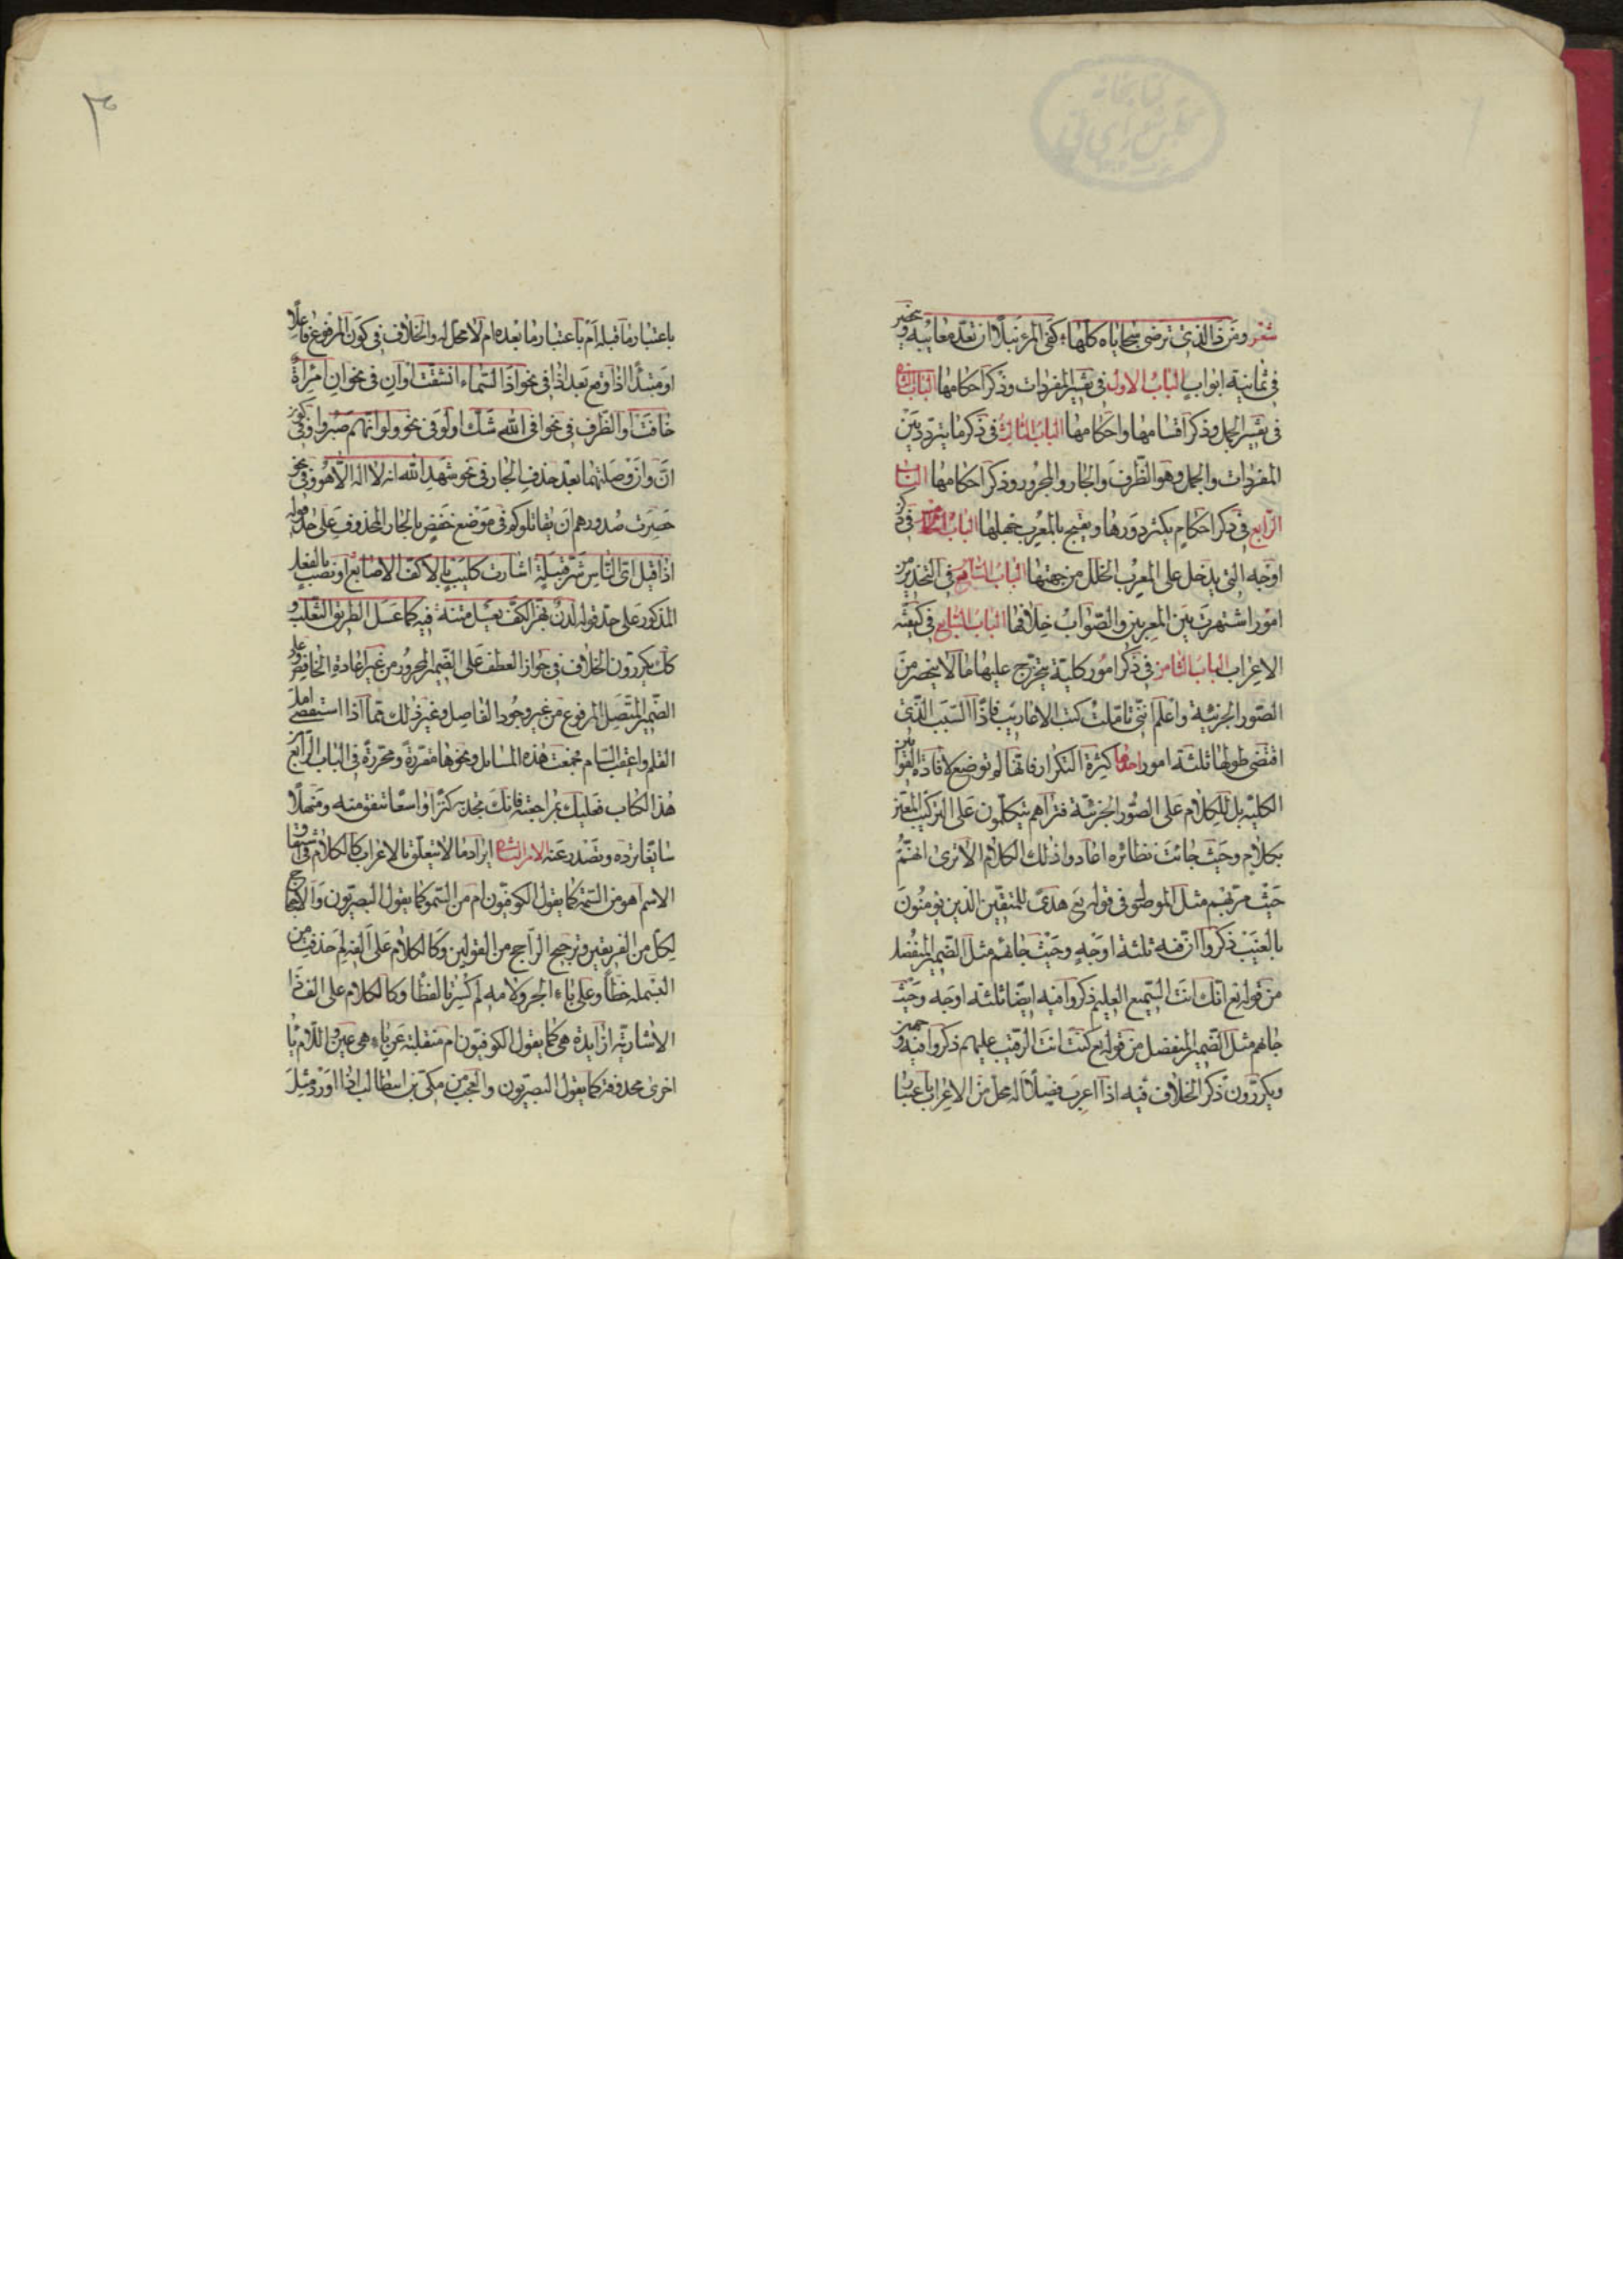 شعر ومن ذا الذي ترضى سجاياه كلها كفى المرء نبلا ان تعد معايبه وينحصر
في ثمانية ابواب الباب الاول في تفسير المفردات وذكر احكامها الباب الثاني
في تفسير الجمل وذكر اقسامها واحكامها الباب الثالث في ذكر ما يتردد بين
المفردات والجمل وهو الظرف والجار والمجرور وذكر احكامها الباب
الرابع في ذكر احكام يكثر دورها ويقبح بالمعرب جهلها الباب الخامس في ذكر
اوجه التي يدخل على المعرب الخلل من جهتها الباب السادس في التحذير من
امور اشتهرت بين المعربين والصواب خلافها الباب السابع في كيفية
الاعراب الباب الثامن في ذكر امور كلية يتخرج عليها ما لا ينحصر من
الصور الجزئية واعلم انني تاملت كتب الاعاريب فاذا السبب الذي
اقتضى طولها ثلثة امور احدها كثرة التكرار فانها لم توضع لافادة القوانين
الكلية بل للكلام على الصور الجزئية فتراهم يتكلمون على التركيب المعين
بكلام وحيث جائت نظائره اعادوا ذلك الكلام الا ترى انهم
حيث مر بهم مثل الموصول في قوله تع هدى للمتقين الذين يؤمنون
بالغيب ذكروا ان فيه ثلثة اوجه وحيث جائهم مثل الضمير المنفصل
من قوله تع انك انت السميع العليم ذكروا فيه ايضا ثلثة اوجه وحيث
جائهم مثل الضمير المنفصل من قوله تع كنت انت الرقيب عليهم ذكروا فيه وجهين
ويكررون ذكر الخلاف فيه اذا اعرب فصلا اله محل من الاعراب باعتبار
٣
باعتبار ما قبله ام باعتبار ما بعده ام لا محل له والخلاف في كون المرفوع فاعلا
او مبتدأ اذا وقع بعد اذا في نحو اذا السماء انشقت او ان في نحو ان امرأة
خافت او الظرف في نحو افي الله شك او لو في نحو ولو انهم صبروا وفي كون
ان وان وصلتهما بعد حذف الجار في نحو شهد الله انه لا اله الا هو وفي نحو
حصرت صدورهم ان يقاتلوكم في موضع خفض بالجار المحذوف على حد قوله
اذا قيل اى الناس شر قبيلة اشارت كليب بالاكف الاصابع او نصب بالفعل
المذكور على حد قوله لدن بهز الكف يعسل متنه فيه كما عسل الطريق الثعلب و
كك يكررون الخلاف في جواز العطف على الضمير المجرور من غير اعادة الخافض وعلى
الضمير المتصل المرفوع من غير وجود الفاصل وغير ذلك مما اذا استقصى امل
القلم واعقب السام فجمعت هذه المسائل ونحوها مقررة ومحررة في الباب الرابع من
هذا الكتاب فعليك بمراجعته فانك تجد به كنزا واسعا تنفق منه ومنهلا
سائغا ترده وتصدر عنه الامر الثاني ايراد ما لا يتعلق بالاعراب كالكلام في اشتقاق
الاسم اهو من السمة كما يقول الكوفيون ام من السمو كما يقول البصريون والاحتجاج
لكل من الفريقين وترجيح الراجح من القولين وكالكلام على الفه لم حذفت من
البسملة خطا وعلى باء الجر ولامه لم كسرتا لفظا وكالكلام على الف ذا
الاشارية ازايدة هي كما يقول الكوفيون ام منقلبة عن ياء هي عين واللام يا
اخرى محذوفة كما يقول البصريون والعجب من مكي بن ابيطالب اذا اورد مثل